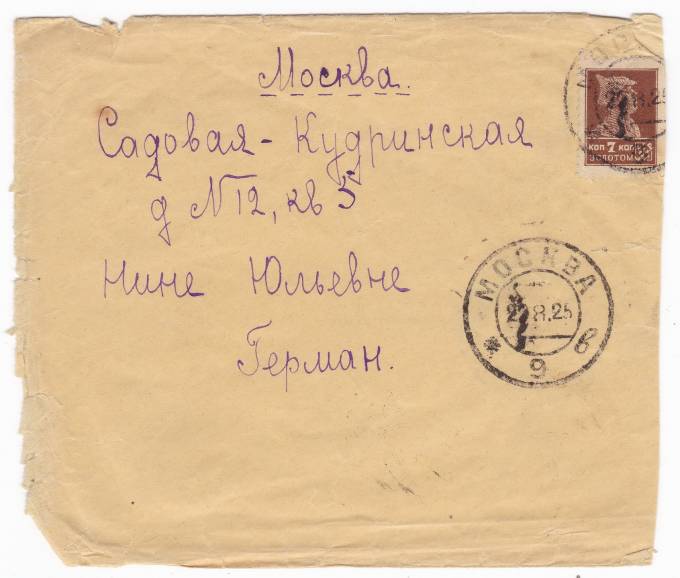 Москва.
Садовая-Кудринская
д №12, кв 5
Нине Юльевне
Герман.
КОП 7 КОП
ЗОЛОТОМ
МОСКВА
8.25
9
в